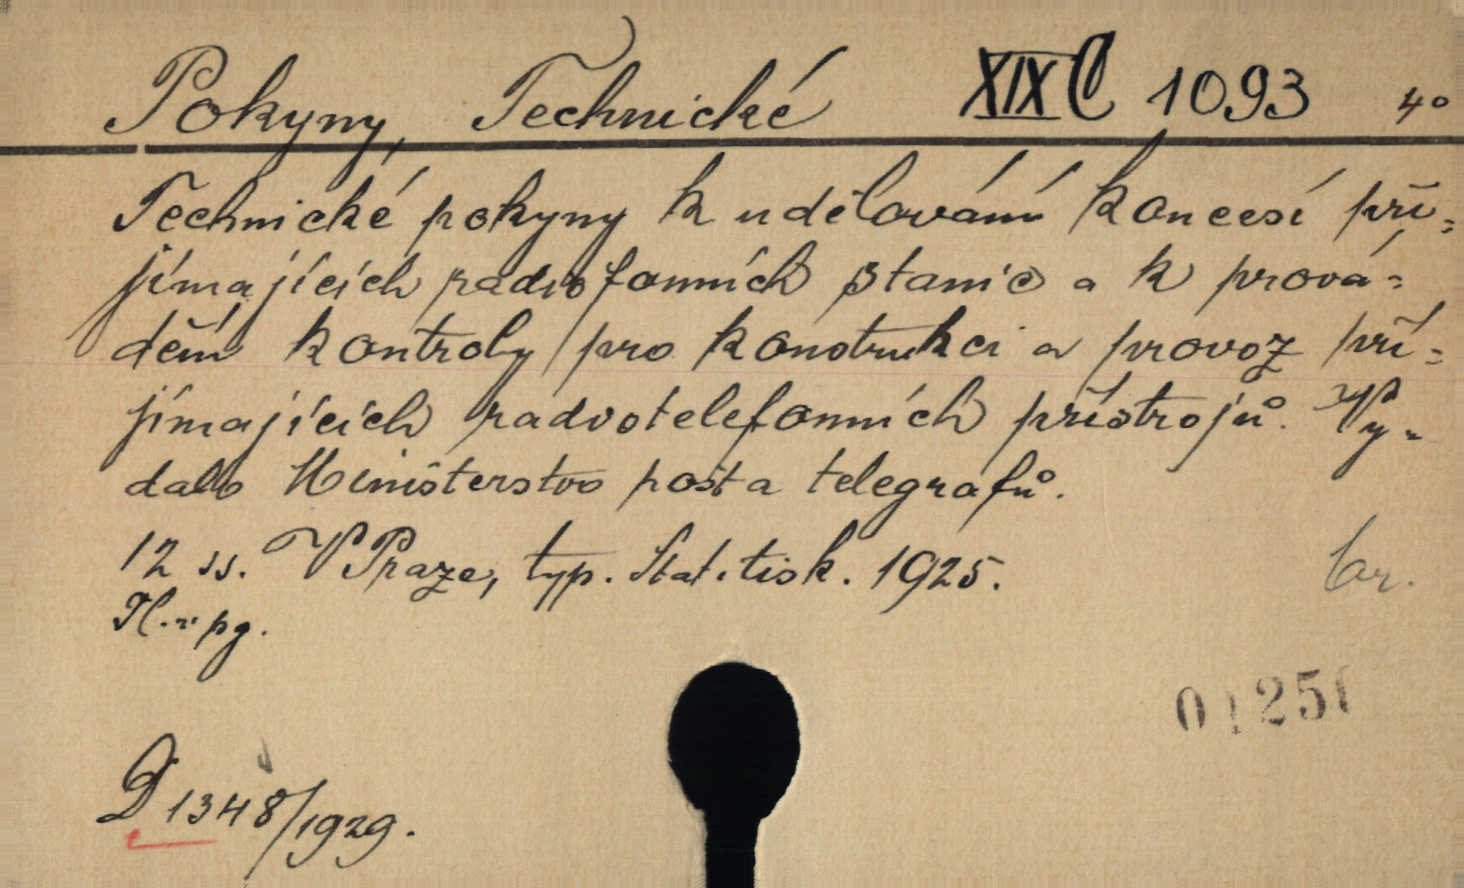 Pokyny, Technické XIX C 1093 4°
Technické pokyny k udělování koncesí při=
jímajících radiofonních stanic a k prová=
dění kontroly pro konstrukci a provoz při=
jímajících radiotelefonních přístrojů. Vy=
dalo Ministerstvo pošt a telegrafů.
12 ss. V Praze, typ. Stát. tisk. 1925.
br.
D 1348/1929.